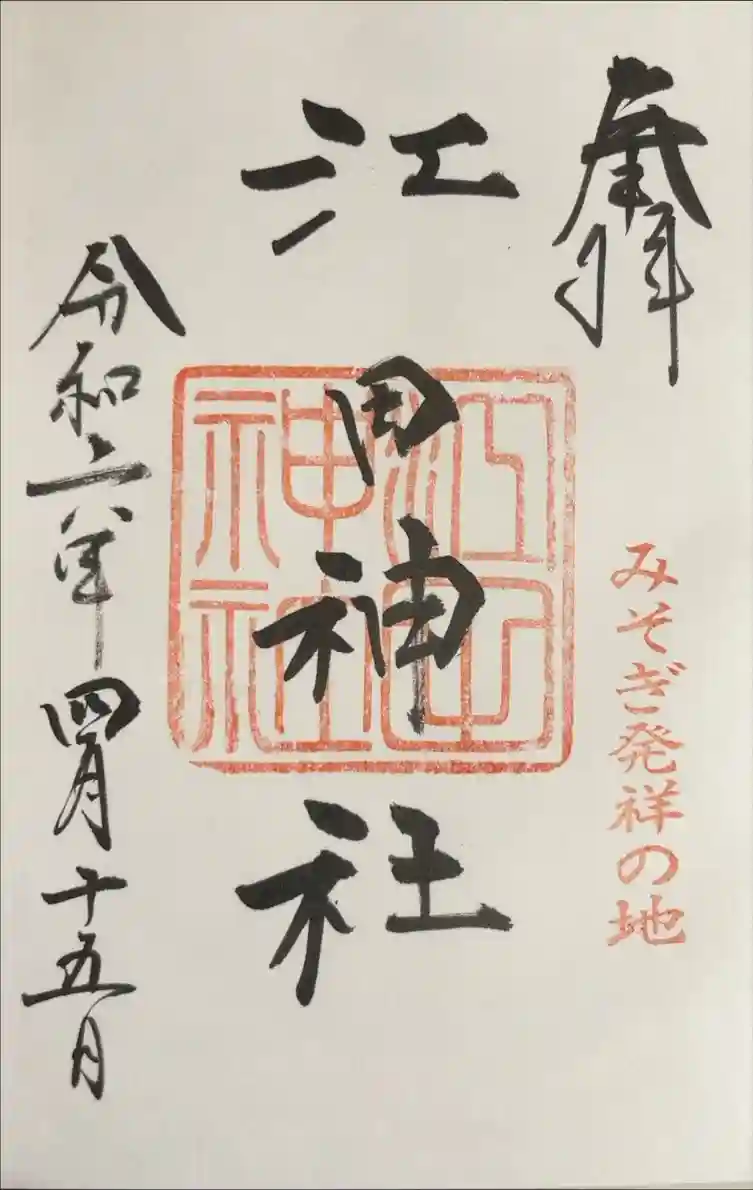 奉拝
みそぎ発祥の地
江田神社
江田神社
令和六年四月十五日